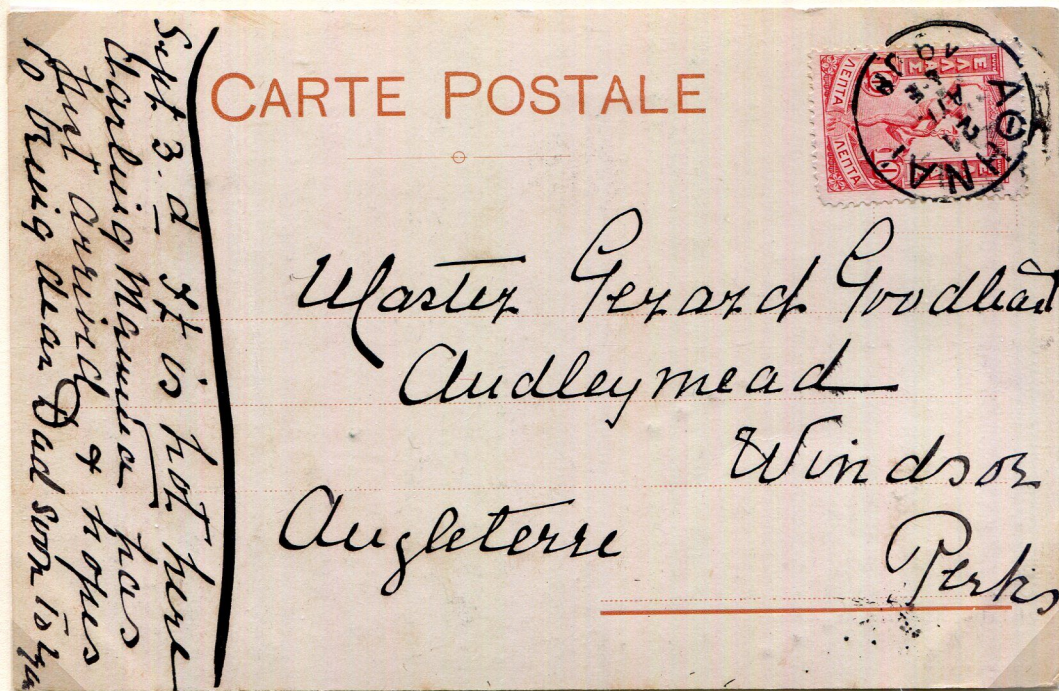 CARTE POSTALE
ΕΛΛΑΣ
ΛΕΠΤΑ
ΛΕΠΤΑ
ΑΘΗΝΑΙ
Master Gerard Goodhart
Audleymead
Windsor
Angleterre
Berks
Sept 3.d It is hot here
Darling Mamma has
just arrived & hopes
to bring dear Dad soon to you